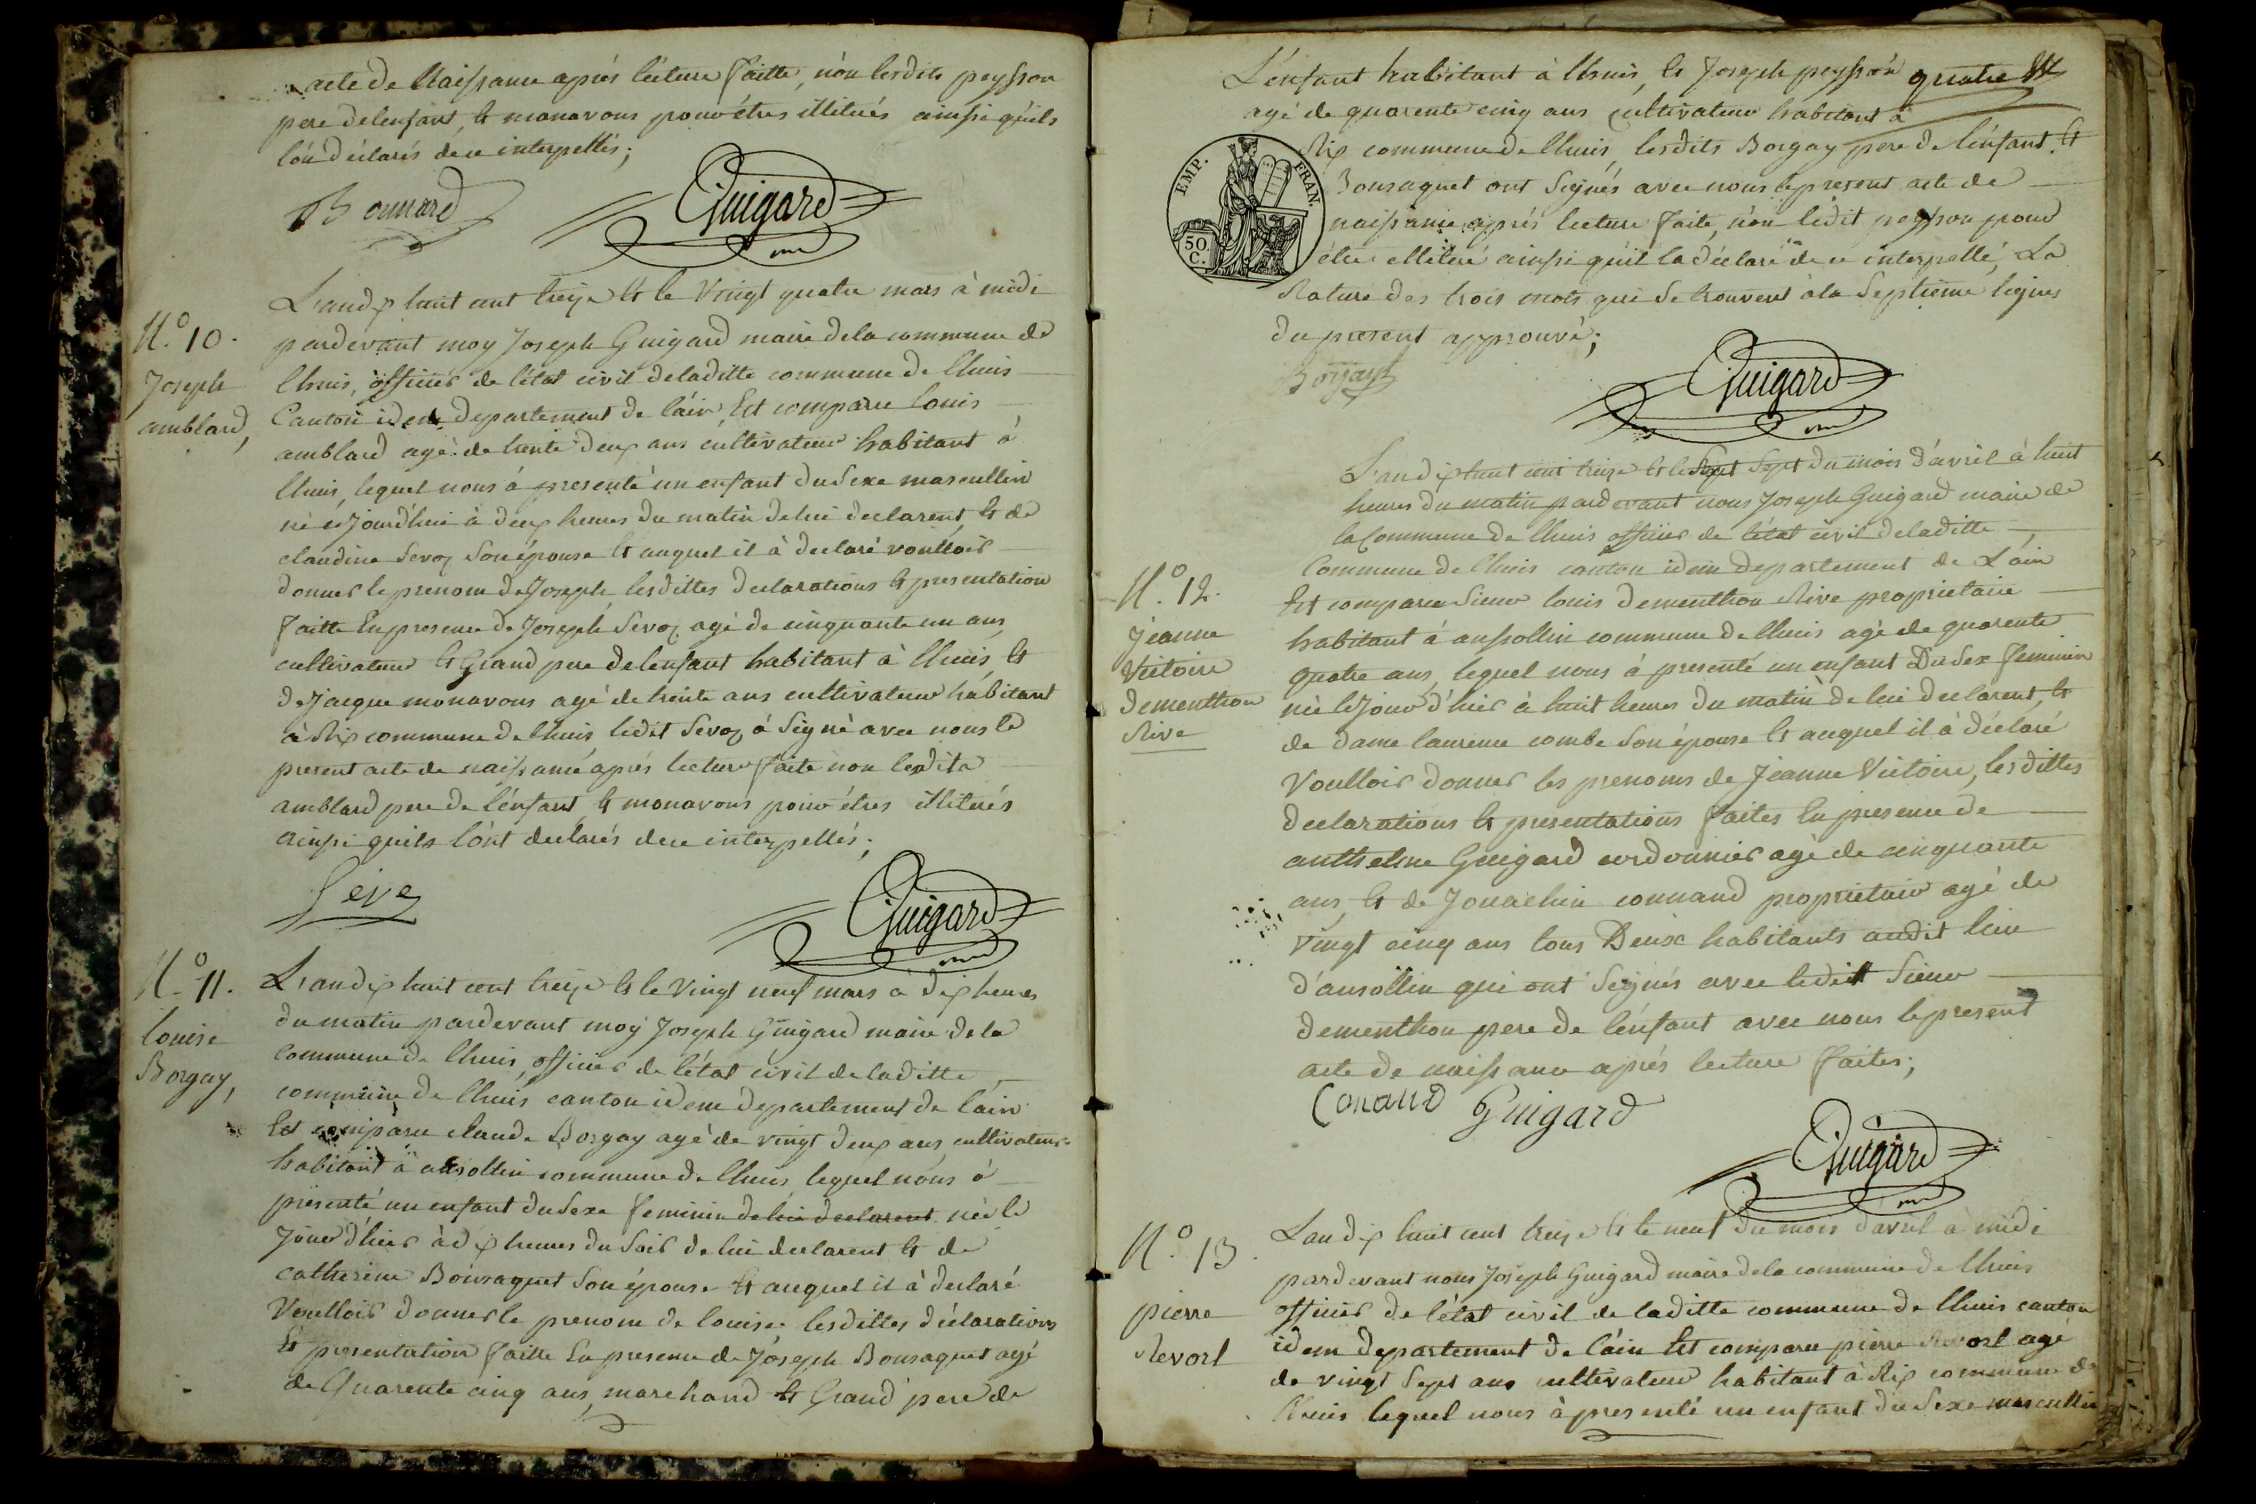 acte de Naissance aprés lecture faitte, non lesdits peysson
pere delenfant, et monavons pour étres illitués ainsi quils
lon déclarés de ce interpellés;
Bonnard Guigard
L'an dix huit cent treize et le vingt quatre mars à midi
N.º 10.
pardevant moy Joseph Guigard maire dela commune de
Joseph
lhuis, officier de létat civil deladitte commune de lhuis
amblard,
Canton idem departement de l'ain Est comparu Louis
amblard agé de trente deux ans cultivateur habitant à
lhuis, lequel nous à presenté un enfant du Sexe mascullin
né cejourd'hui à deux heures du matin de lui declarent, et de
claudine Sevoz Son épouse et auquel il à declaré voulloir
donner le prenom de Joseph, lesdittes declarations et presentation
faitte En presence de Joseph Sevoz agé de cinquante un ans
cultivateur et Grand pere delenfant habitant à lhuis, et
de Jacque monavous agé de trente ans cultivateur habitant
à Rix commune de lhuis ledit Sevoz à Signé avec nous le
present acte de naissance aprés lecture faite non lesdits
amblard pere de l'énfant, et monavons pour étres illitués
ainsi quils lónt declarés de ce interpellés;
Seve Guigard
N.º 11.
L'an dix huit cent treize et le vingt neuf mars à dix heures
du matin pardevant moy Joseph Guigard maire dela
louise
commune de lhuis, officier de létat civil de laditte
Borgay,
commune de lhuis canton idem departement de l'ain
Est comparu claude Borgay agé de vingt deux ans, cultivateur
habitant à ansollin commune de lhuis lequel nous à
presenté un enfant du Sexe feminin de lui declarent née le
Jour d'hier à dix heures du Soir de lui declarent et de
catherine Bonsaquet Son épouse et auquel il à declaré
Voulloir donner le prenom de louise lesdittes déclarations
Et presentation faitte En presence de Joseph Bonsaquet agé
de Quarente cinq ans, marchand et Grand pere de
L'énfant habitant à lhuis, et Joseph peysson quatre
agé de quarente cinq ans cultivateur habitant à
Rix commune de lhuis, lesdits Borgay pere de lénfant, et
EMP. FRAN.
50. C.
Bonsaquet ont Signés avec nous le present acte de
naissance aprés lecture faite, non ledit peysson pour
étre illitué ainsi quil la déclaré de ce interpellé, La
Rature des trois mots qui se trouvent à la Septieme lignes
du present approuvé;
Borgay Guigard
L'an dix huit cent treize et le Sept Sept du mois d'avril à huit
heures du matin pardevant nous Joseph Guigard maire de
la Commune de lhuis officier de létat civil deladitte
Commune de lhuis canton idem departement de L'ain
N.º 12.
Est comparu Sieur louis dementhon Rive proprietaire
Jeanne
habitant à anssollin commune de lhuis agé de quarente
Victoire
quatre ans, lequel nous à presenté un enfant Du Sex feminin
dementhon
née le Jour d'hier à huit heures du matin de lui declarent, et
Rive
de dame laurence combe Son épouse et auquel il à déclaré
Voulloir donner les prenoms de Jeanne Victoire, lesdittes
declarations et presentations faites En presence de
anthelme Guigard cordonnier agé de cinquante
ans, et de Jouachin connand proprietair agé de
vingt cinq ans tous Deux habitants audit lieu
d'ansollin qui ont Signés avec ledit Sieur
dementhon pere de l'énfant avec nous le present
acte de naissance aprés lecture faites;
Conand Guigard
Guigard
N.º 13.
L'an dix huit cent treize et le neuf du mois d'avril à midi
pardevant nous Joseph Guigard maire dela commune de lhuis
pierre
officier de létat civil de laditte commune de lhuis canton
Revorl
idem departement de l'ain Est comparu pierre Revorl agé
de vingt Sept ans cultivateur habitant à Rix commune de
lhuis lequel nous à presenté un enfant du Sexe mascullin